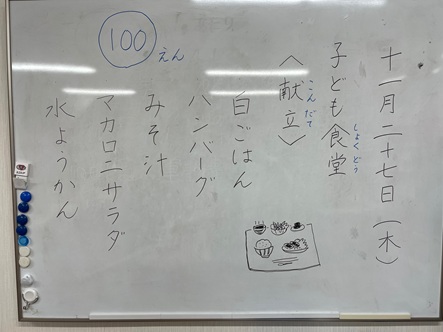 十一月二十七日(木)
子ども食堂
しょくどう
〈献立〉
こんだて
白ごはん
ハンバーグ
みそ汁
マカロニサラダ
水ようかん
100えん